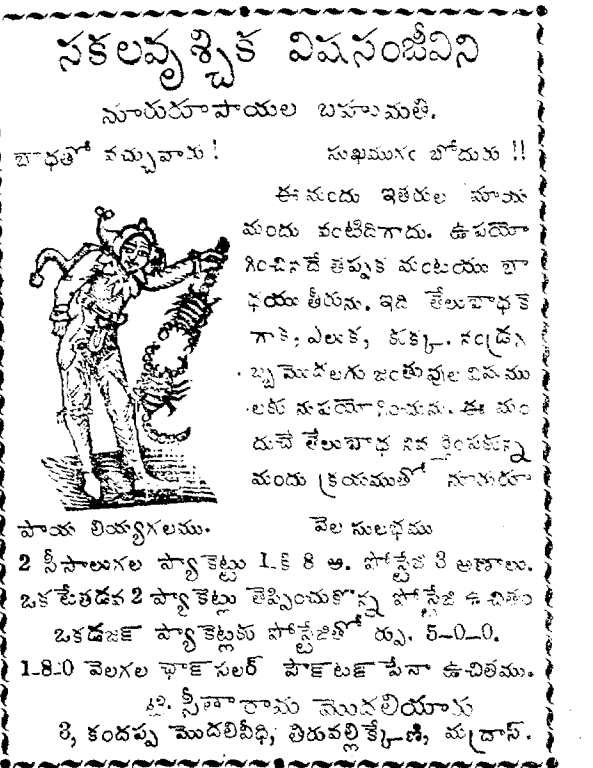 సకలవృశ్చిక విషసంజీవిని
నూరురూపాయల బహుమతి.
బాధతో వచ్చువారు! సుఖముగఁ బోదురు !!
ఈ మందు ఇతరుల మాయ
మందు వంటిదిగాదు. ఉపయో
గించినదే తప్పక మంటయు బా
ధయు తీరును. ఇది తేలుబాధకె
గాక, ఎలుక, కుక్క,
మొదలగు జంతువుల విషము
లకు నుపయోగించును. ఈ మం
దుచే తేలుబాధ నివర్తింపకున్న
మందు క్రయముతో నూరురూ
పాయ లియ్యగలము. వెల సులభము
2 సీసాలుగల ప్యాకెట్టు 1-కి 8 అ. పోస్టేజి 3 అణాలు.
ఒకేతడవ 2 ప్యాకెట్లు తెప్పించుకొన్న పోస్టేజి ఉచితం
ఒకడజన్ ప్యాకెట్లకు పోస్టేజితో ర్పు. 5-0-0.
1-8-0 వెలగల ఫాన్సలర్ పౌంటన్ పేనా ఉచితము.
టి. సీతారామ మొదలియారు
8, కందప్ప మొదలివీధి, తిరువల్లిక్కేణి, మద్రాస్.